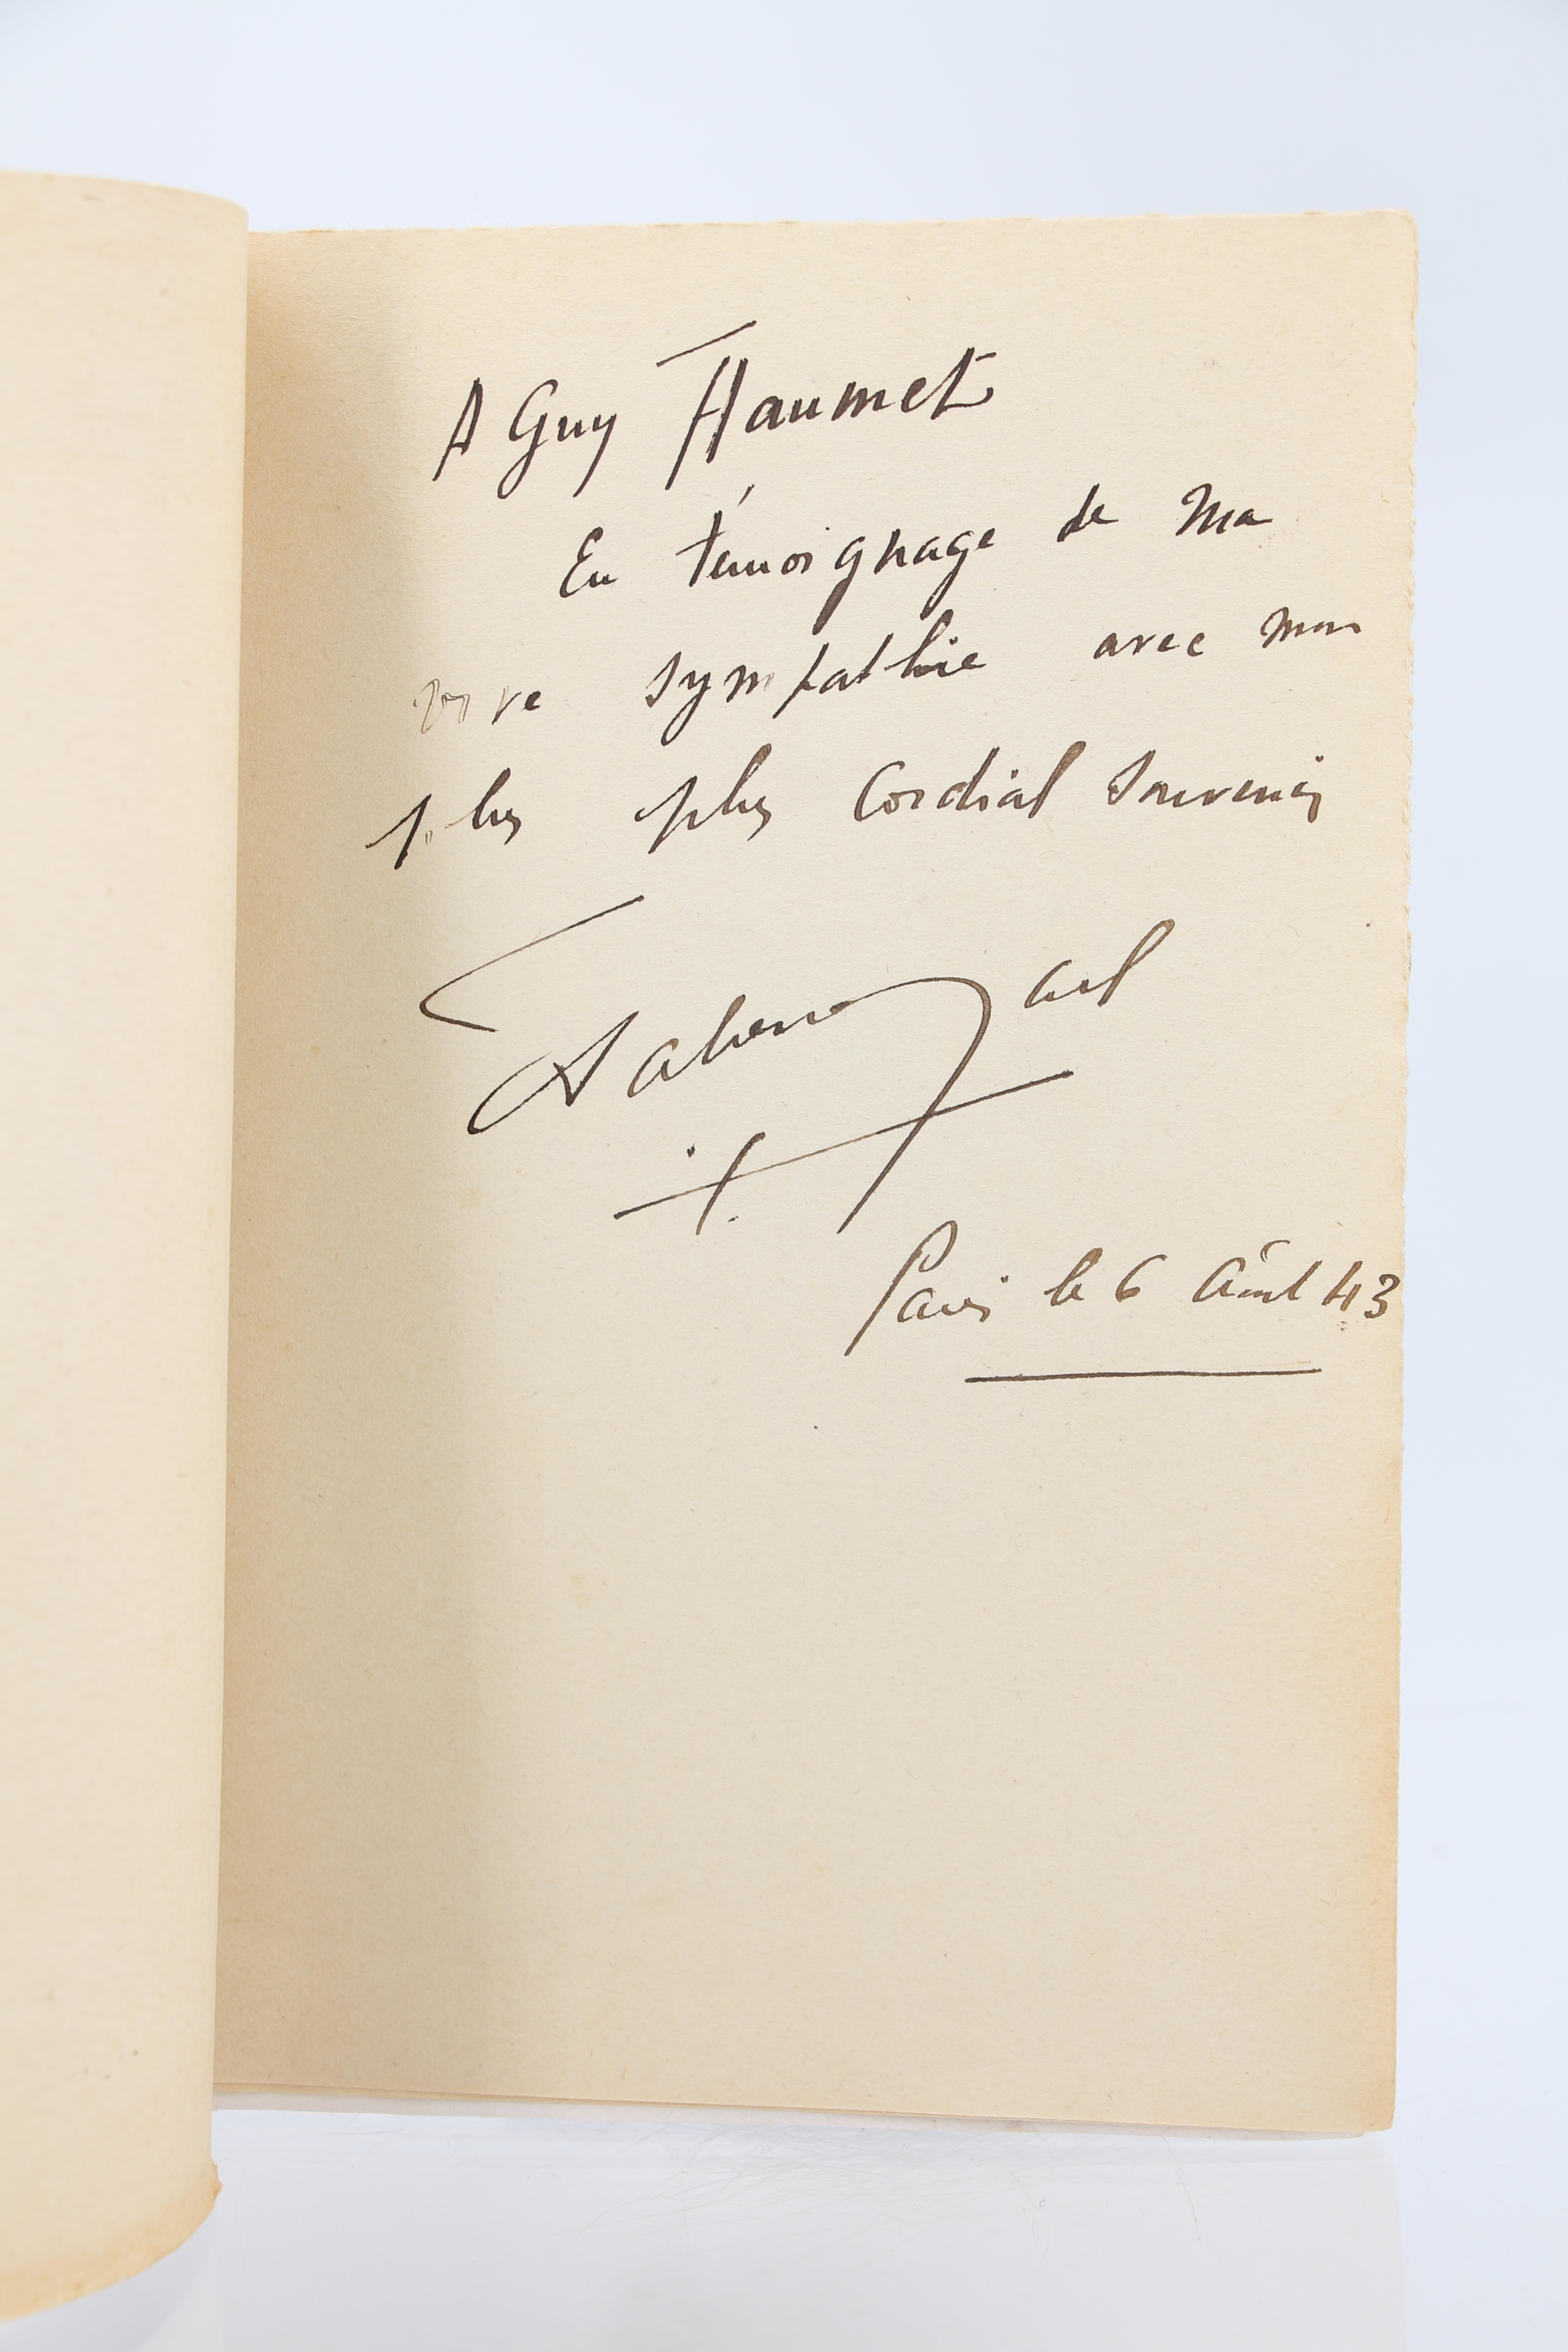 A Guy Haumet
En témoignage de ma
vive sympathie avec mon
plus plus Cordial souvenir
Paris le 6 Août 43